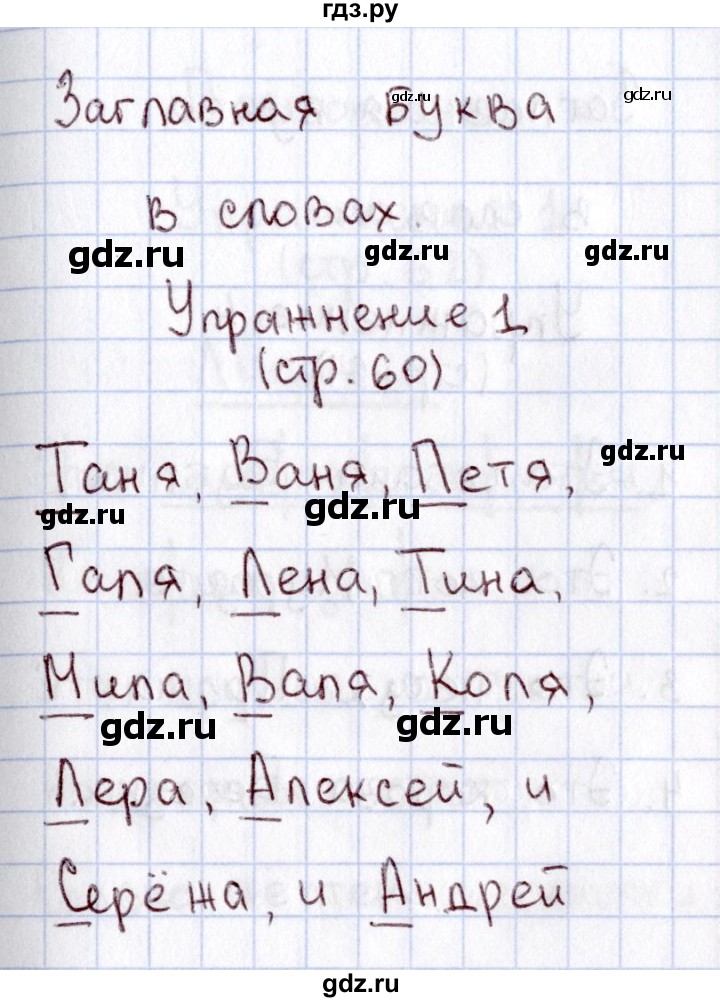 гдз.ру
Заглавная буква
gdz.ru
в словах.
gdz.ru
gdz.ru
gdz.ru
Упражнение 1
(стр. 60)
Таня, Ваня, Петя,
gdz.ru
gdz.ru
gdz.ru
Галя, Лена, Тина,
Мила, Валя, Коля,
gdz.ru
gdz.ru
Лера, Алексей, и
Серёжа, и Андрей
gdz.ru